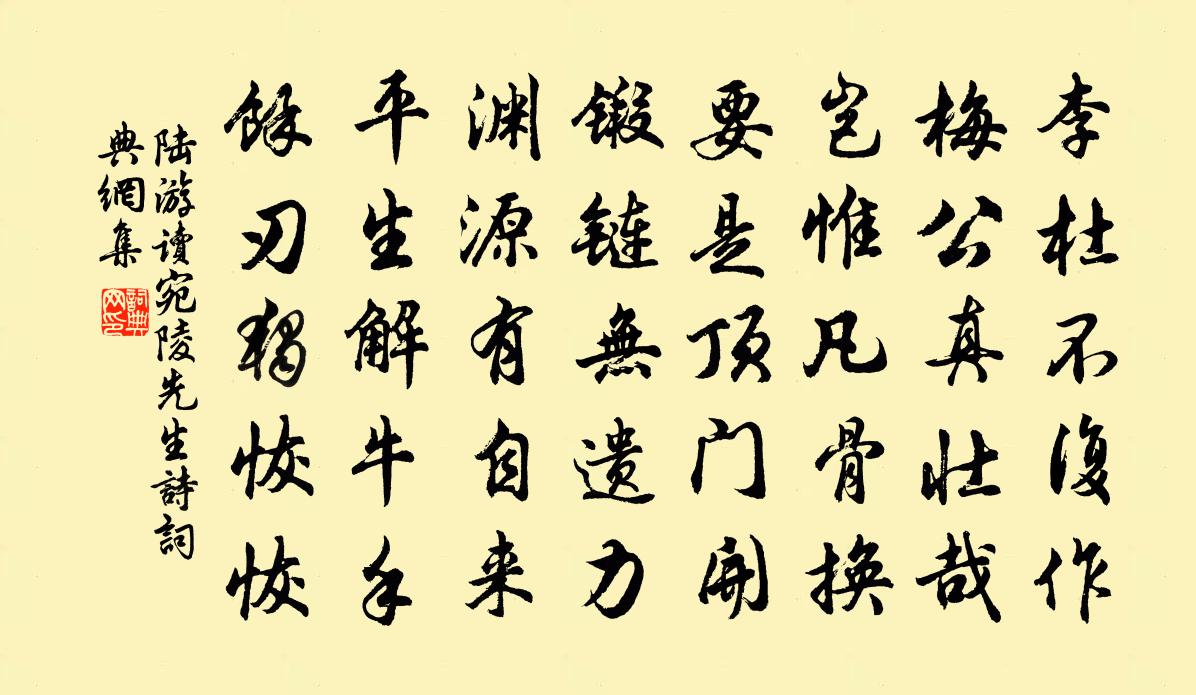 李杜不復作
梅公真壮哉
岂惟凡骨換
要是顶门開
鍛链無遗力
渊源有自来
平生解牛手
餘刃獨恢恢
陆游讀宛陵先生詩詞
典網集
詞典
网印